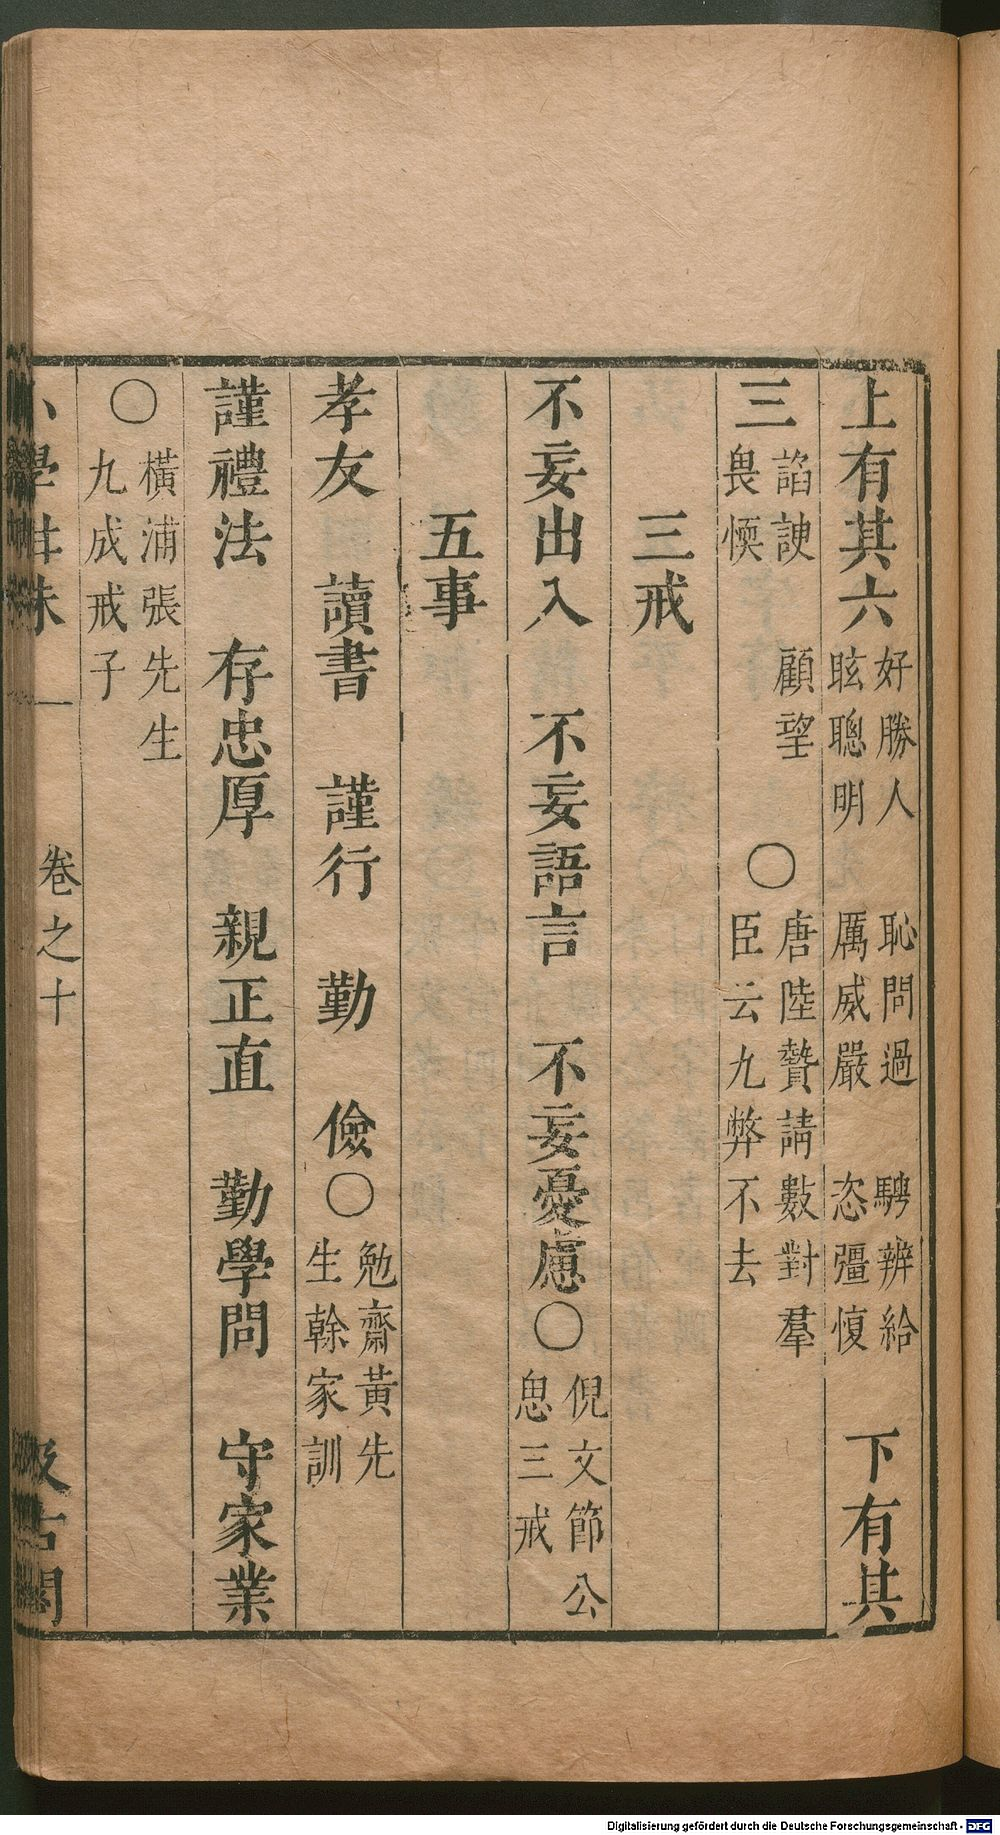 上有其六 好勝人 恥問過 騁辨給 眩聰明 厲威嚴 恣彊愎 下有其
三 諂諛 顧望 畏愞 〇 唐陸贄請數對羣臣云九弊不去
三戒
不妄出入 不妄語言 不妄憂慮〇 倪文節公思三戒
五事
孝友 讀書 謹行 勤 儉〇 勉齋黃先生榦家訓
謹禮法 存忠厚 親正直 勤學問 守家業
〇 橫浦張先生九成戒子
小學紺珠 卷之十 汲古閣
Digitalisierung gefördert durch die Deutsche Forschungsgemeinschaft - DFG